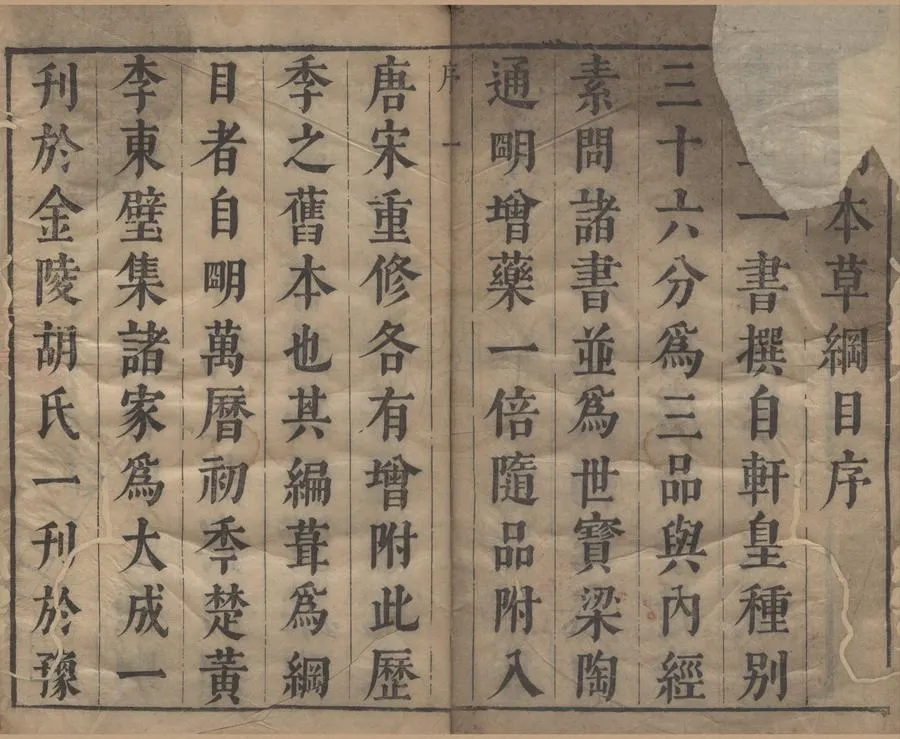 本草綱目序
一書撰自軒皇種別
三十六分為三品與內經
素問諸書並為世寶梁陶
通明增藥一倍隨品附入
序 一
唐宋重修各有增附此歷
季之舊本也其編葺為綱
目者自明萬曆初季楚黃
李東璧集諸家為大成一
刊於金陵胡氏一刊於豫